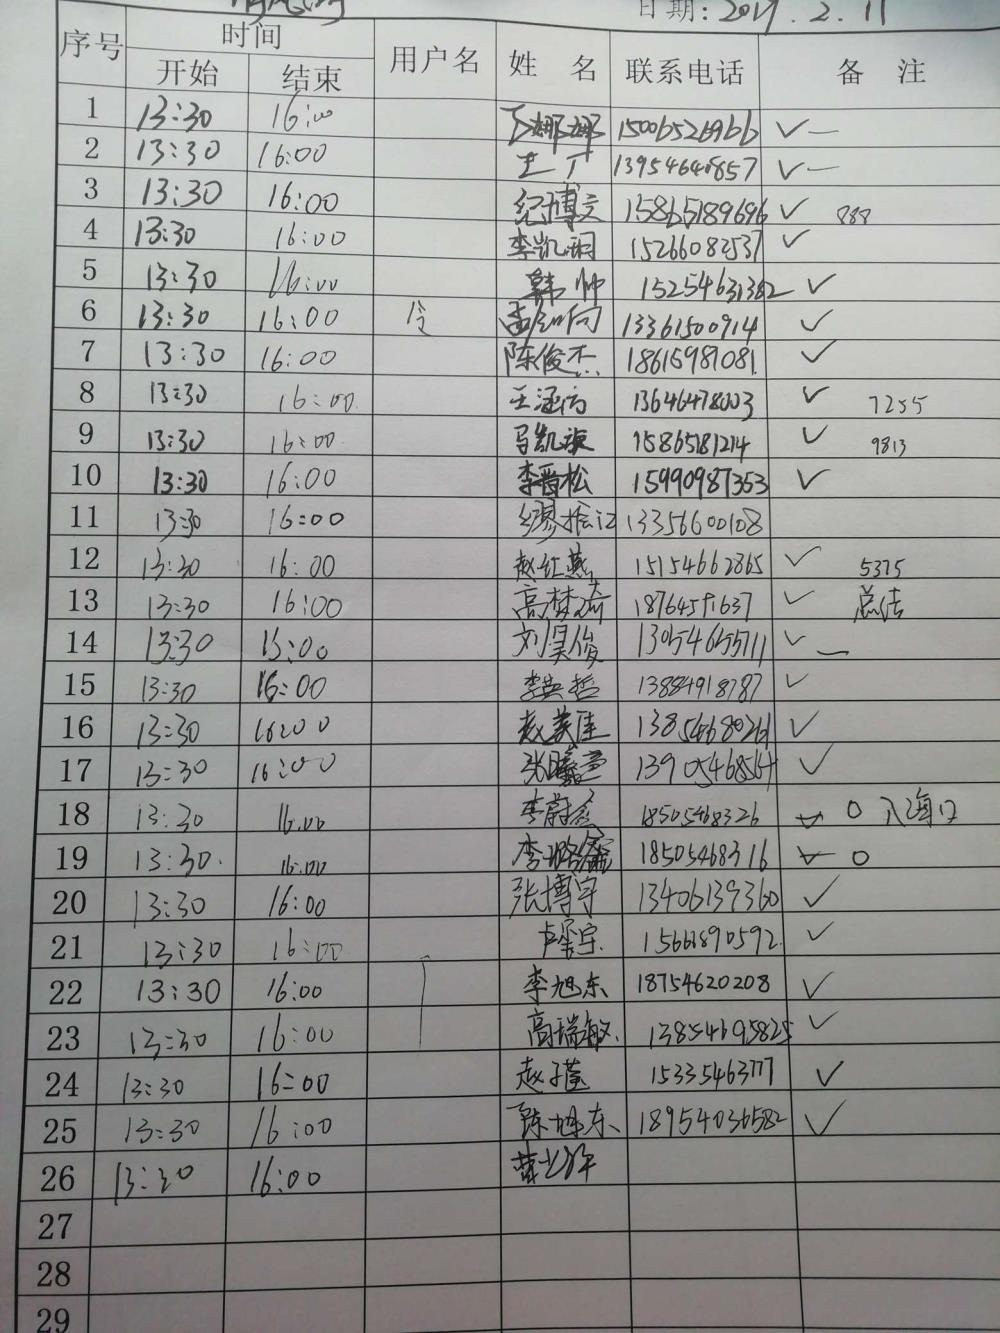 日期: 2019.2.11
序号 时间 用户名 姓名 联系电话 备注
开始 结束
1 13:30 16:00 15006526966 ✓—
2 13:30 16:00 王丁 13954640857 ✓—
3 13:30 16:00 纪博文 15865189696 ✓ 888
4 13:30 16:00 李凯 15266082537 ✓
5 13:30 16:00 韩帅 15254631382 ✓
6 13:30 16:00 13361500914 ✓
7 13:30 16:00 陈俊杰 18615981081 ✓
8 13:30 16:00 王涵 13646478003 ✓ 7255
9 13:30 16:00 马凯 15865181214 ✓ 9813
10 13:30 16:00 李晋松 15990987353 ✓
11 13:30 16:00 13356600108
12 13:30 16:00 赵红燕 15154662865 ✓ 5375
13 13:30 16:00 高梦 ✓ 总结
14 13:30 15:00 刘昊俊 13054655711 ✓—
15 13:30 16:00 李英哲 13884918787 ✓
16 13:30 16:00 赵美佳 13854680261 ✓
17 13:30 16:00 张曦 13905468564 ✓
18 13:30 16.00 李蔚 18505468326 ✓ 0 入海口
19 13:30 16:00 李璐 18505468316 ✓ 0
20 13:30 16:00 张博宇 13406139360 ✓
21 13:30 16:00 15661890592 ✓
22 13:30 16:00 李旭东 18754620208 ✓
23 13:30 16:00 高瑞敏 13854695825 ✓
24 13:30 16:00 赵子莹 15335463777 ✓
25 13:30 16:00 陈旭东 18954036582 ✓
26 13:30 16:00
27
28
29